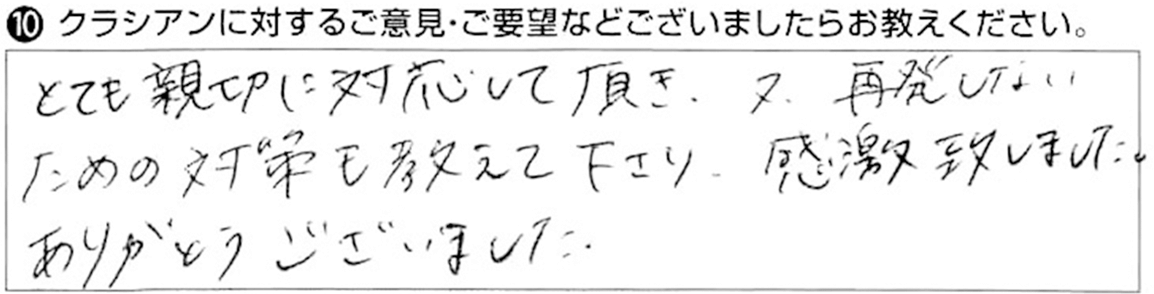 ❿ クラシアンに対するご意見・ご要望などございましたらお教えください。
とても親切に対応して頂き、又、再発しない
ための対策も教えて下さり、感激致しました。
ありがとうございました。